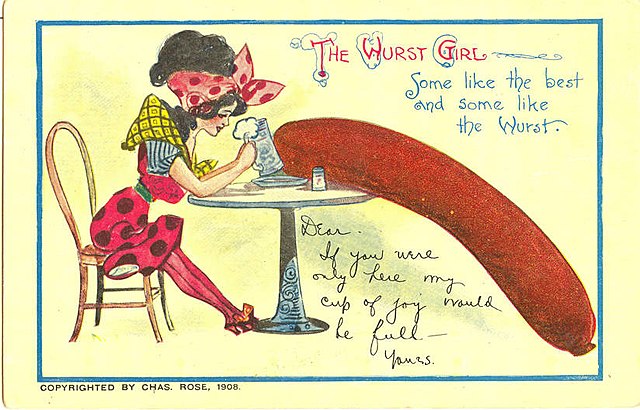 The Wurst Girl
Some like the best
and some like
the Wurst.
Dear.
If you were
only here my
cup of joy would
be full—
Yours.
COPYRIGHTED BY CHAS. ROSE, 1908.